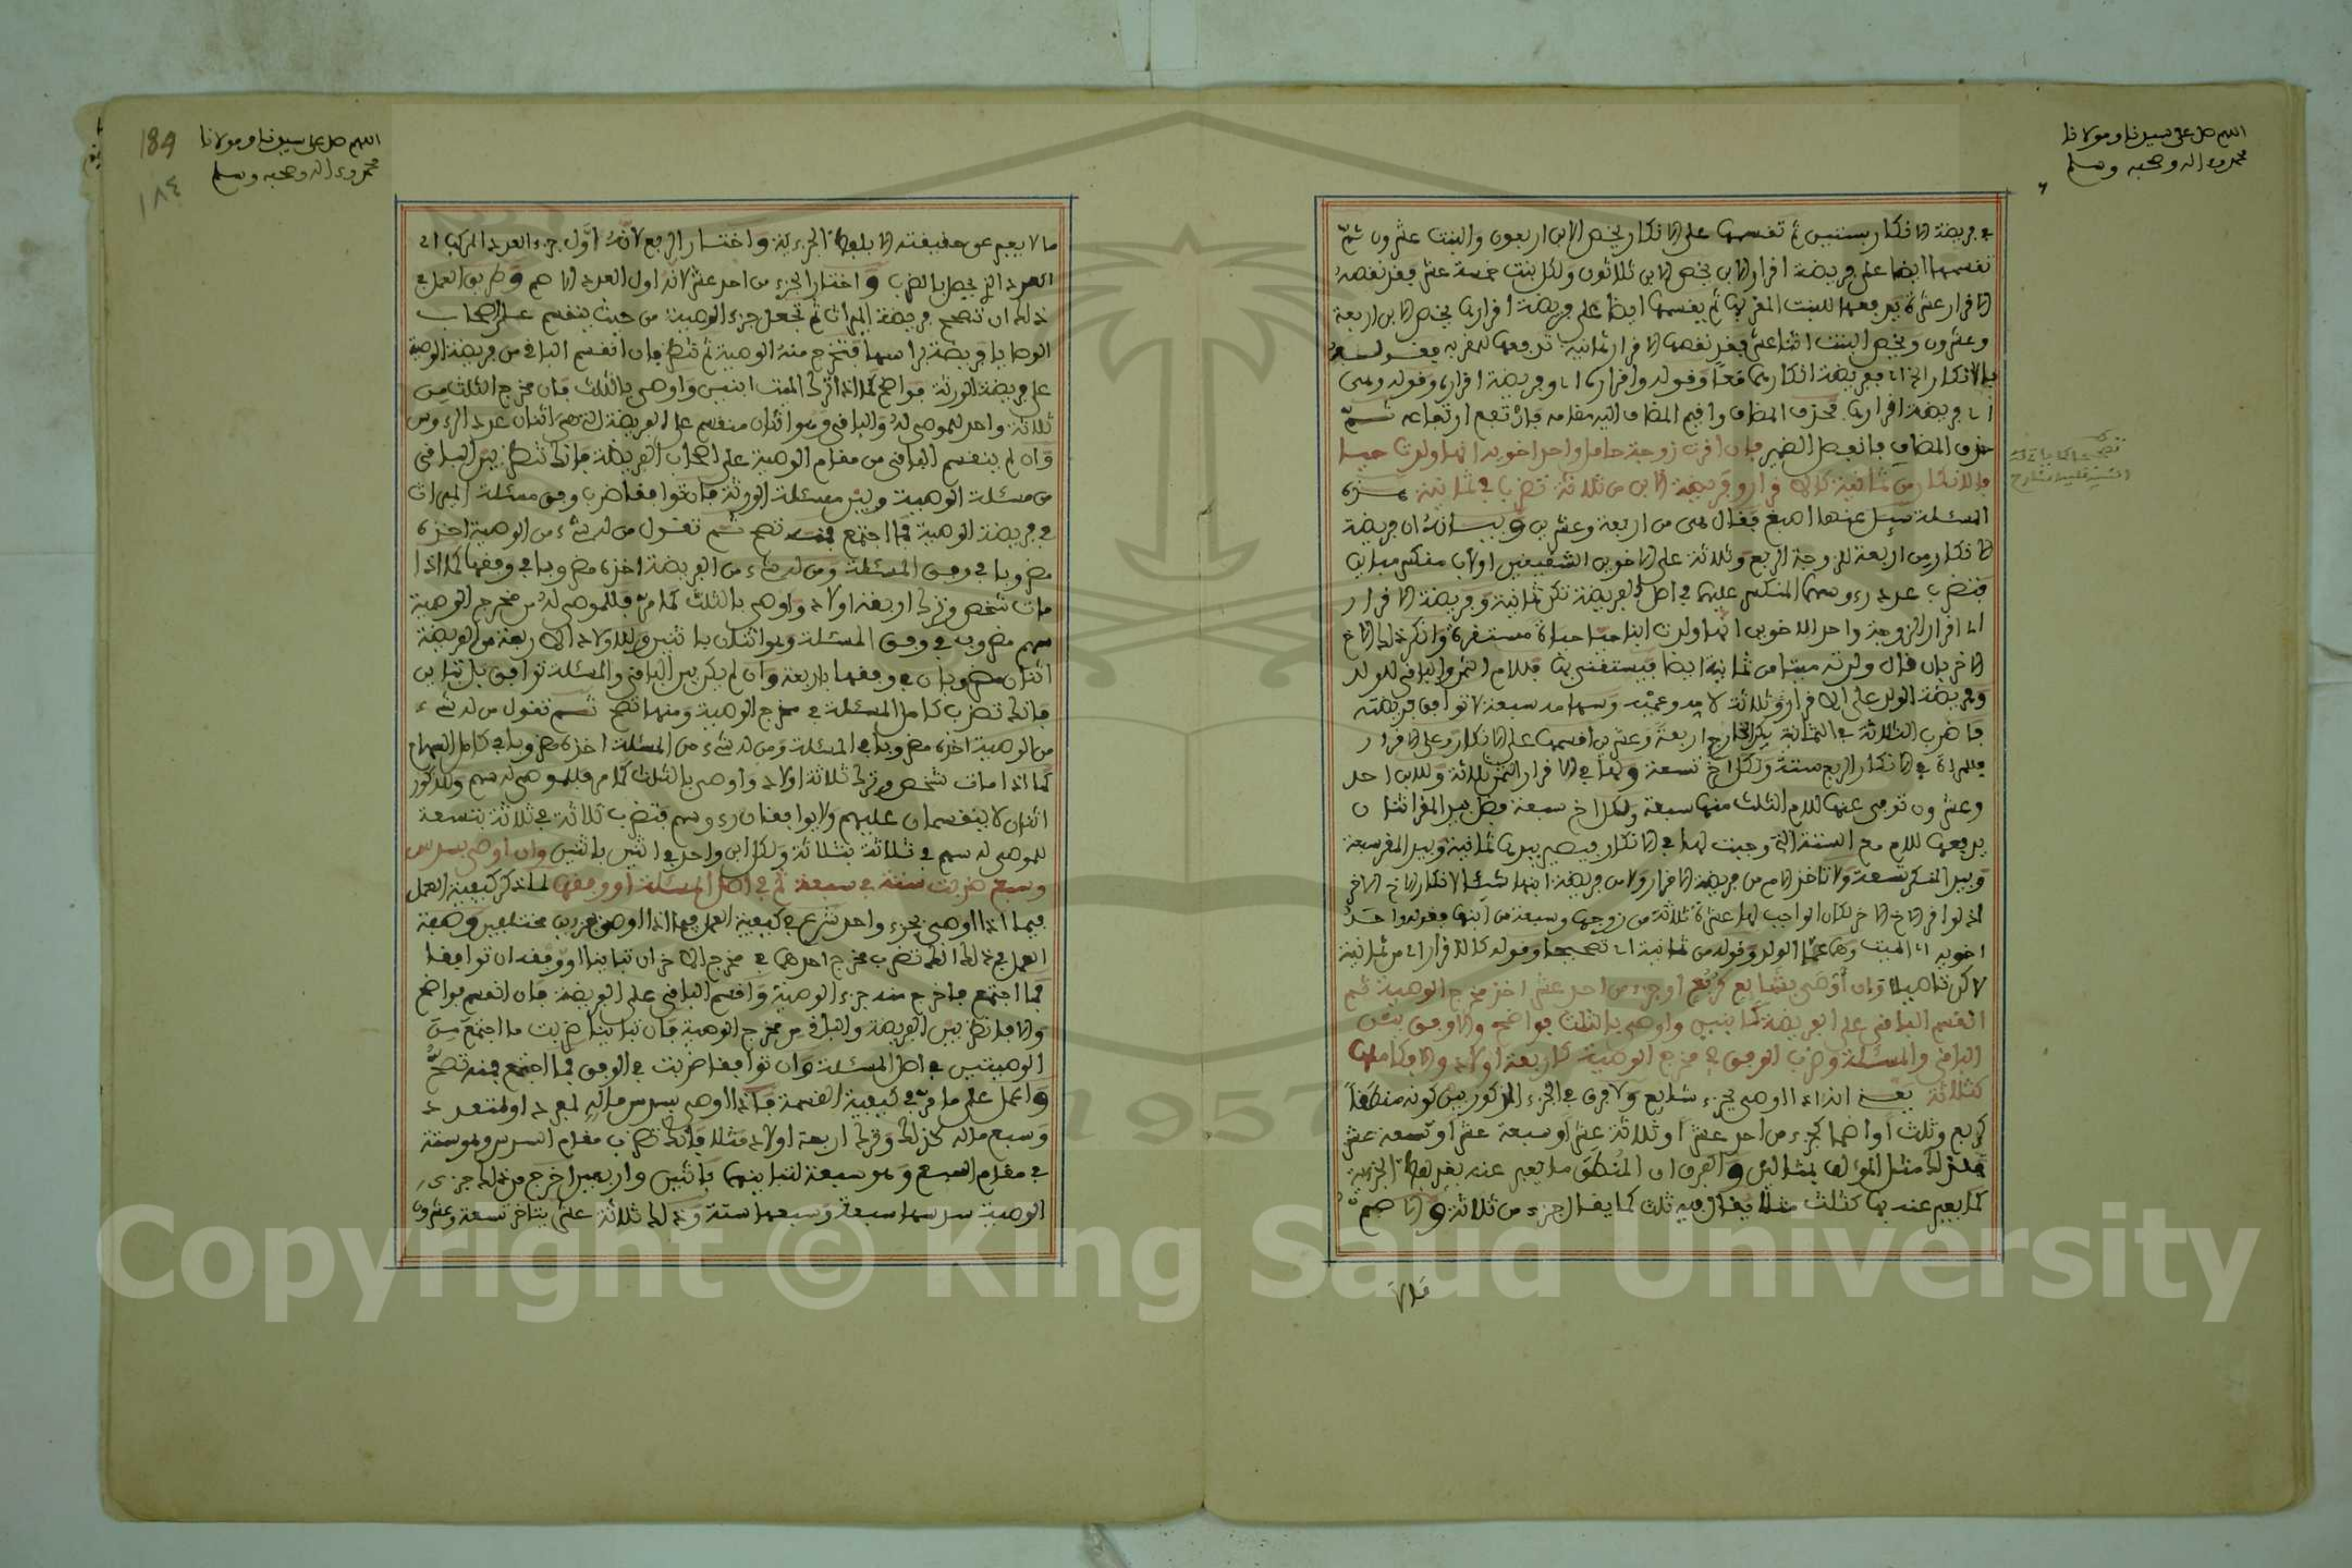 اللهم صل على سيدنا ومولانا
محمد وءاله وصحبه وسلم
في فريضة الانكار بستين ثم تقسمها على الانكار يخص الابن اربعون والبنت عشرون ثم
تقسمها ايضا على فريضة اقرار الابن يخص الابن ثلاثون ولكل بنت خمسة عشر فقد نقصه
الاقرار عشرة يدفعها للبنت المقر بها ثم يقسمها ايضا على فريضة اقرارها يخص الابن اربعة
وعشرون ويخص البنت اثنا عشر فقد نقصها الاقرار ثمانية تدفعها للمقر به فقوله
بالانكار اي بفريضة انكارهما معا وقوله واقراره اي وفريضة اقراره وقوله وهي
اي فريضة اقرارها فحذف المضاف واقيم المضاف اليه مقامه فارتفع ارتفاعه ثم
حذف المضاف فانفصل الضمير فإن اقرت زوجة حامل واحد اخويه انها ولدت حيا
فالانكار من ثمانية كالاقرار وفريضة الابن من ثلاثة تضرب في ثمانية هذه
المسئلة سئل عنها اصبغ فقال هي من اربعة وعشرين وبيانه ان فريضة
الانكار من اربعة للزوجة الربع وثلاثة على الاخوين الشقيقين او لأب منكسر مباين
فتضرب عدد رءوسهما المنكسر عليهما في اصل الفريضة تكن ثمانية وفريضة الاقرار
اي اقرار الزوجة واحد الاخوين انها ولدت ابنا حيا حياة مستقرة وانكر ذلك الاخ
الاخر بان قال ولدته ميتا من ثمانية ايضا فيستغنى بها فللام الثمن والباقي للولد
وفريضة الولد على الاقرار وثلاثة لامه وعميه وسهامه سبعة لا توافق فريضته
فاضرب الثلاثة في الثمانية يكن الخارج اربعة وعشرين اقسمها على الانكار وعلى الاقرار
فللمراة في الانكار الربع ستة ولكل اخ تسعة ولها في الاقرار الثمن ثلاثة وللابن احد
وعشرون توفي عنها للام الثلث منها سبعة ولكل اخ سبعة فضل بيد المقر اثنان
يدفعها للام مع الستة التي وجبت لها في الانكار فيصير بيدها ثمانية وبيد المقر سبعة
وبيد المنكر تسعة ولا تاخذ الام من فريضة الاقرار ولا من فريضة ابنها شيئا لانكار الاخ الاخر
اذ لو اقر الاخ الاخر لكان الواجب لها عشرة ثلاثة من زوجها وسبعة من ابنها فقوله واحد
اخويه اي الميت وهما عما الولد وقوله من ثمانية اي تصحيحا وقوله كالاقرار اي من ثمانية
لاكن تاصيلا وان أوصى بشايع كربع او جزء من احد عشر اخذ مخرج الوصية ثم
انقسم الباقي على الفريضة كابنين واوصى بالثلث فواضح والا وفق بين
الباقي والمسئلة وضرب الوفق في مخرج الوصية كاربعة اولاد والا فكاملها
كثلاثة يعني انه اذا اوصى بجزء شايع ولا فرق في الجزء المذكور بين كونه منطقا
كربع وثلث او اصما كجزء من احد عشر او ثلاثة عشر او سبعة عشر او تسعة عشر
فلذلك مثل المؤلف بمثالين والفرق ان المنطق ما يعبر عنه بغير لفظ الجزئية
كما يعبر عنه بها كثلث مثلا يقال فيه ثلث كما يقال جزء من ثلاثة والاصم
اللهم صل على سيدنا ومولانا
محمد وءاله وصحبه وسلم
189
١٨٤
ما لا يعبر عن حقيقته الا بلفظ الجزئية واختار الربع لانه اول جزء العدد المركب اي
العدد الذي يحصل بالضرب واختار الجزء من احد عشر لانه اول العدد الاصم وطريق العمل في
ذلك ان تصحح فريضة الميراث ثم تجعل جزء الوصية من حيث ينقسم على اصحاب
الوصايا فريضة براسها فتخرج منه الوصية ثم تنظر فإن انقسم الباقي من فريضة الوصية
على فريضة الورثة فواضح كما اذا ترك الميت ابنين واوصى بالثلث فان مخرج الثلث من
ثلاثة واحد للموصى له والباقي وهو اثنان منقسم على الفريضة التي هي اثنان عدد الرءوس
وان لم ينقسم الباقي من مقام الوصية على اصحاب الفريضة فانك تنظر بين الباقي
من مسئلة الوصية وبين مسئلة الورثة فان توافقا ضرب وفق مسئلة الميراث
في فريضة الوصية فما اجتمع فمنه تصح ثم تقول من له شيء من الوصية اخذه
مضروبا في وفق المسئلة ومن له شيء من الفريضة اخذه مضروبا في وفقها كما اذا
مات شخص وترك اربعة اولاد واوصى بالثلث كما مر فللموصى له من مخرج الوصية
سهم مضروب في وفق المسئلة وهو اثنان باثنين وللاولاد الاربعة من الفريضة
اثنان مضروبان في وفقها باربعة وان لم يكن بين الباقي والمسئلة توافق بل تباين
فانك تضرب كامل المسئلة في مخرج الوصية ومنها تصح ثم تقول من له شيء
من الوصية اخذه مضروبا في المسئلة ومن له شيء من المسئلة اخذه مضروبا في كامل السهام
كما اذا مات شخص وترك ثلاثة اولاد واوصى بالثلث كما مر فللموصى له سهم وللذكور
اثنان لا ينقسمان عليهم ولا يوافقان رءوسهم فتضرب ثلاثة في ثلاثة بتسعة
للموصى له سهم في ثلاثة بثلاثة ولكل ابن واحد في اثنين باثنين وان اوصى بسدس
وسبع ضربت ستة في سبعة ثم في اصل المسئلة او وفقها لما ذكر كيفية العمل
فيما اذا اوصى بجزء واحد شرع في كيفية العمل فيما اذا اوصى بجزءين مختلفين وصفة
العمل في ذلك انك تضرب مخرج احدهما في مخرج الاخر ان تباينا او وفقه ان توافقا
فما اجتمع فاخرج منه جزء الوصية واقسم الباقي على الفريضة فان انقسم فواضح
والا فانظر بين الفريضة والباقي من مخرج الوصية فان تباينا ضربت ما اجتمع من
الوصيتين في اصل المسئلة وان توافقا ضربت في الوفق فما اجتمع فمنه تصح
واعمل على ما مر في كيفية القسمة فاذا اوصى بسدس ماله لمفرد او لمتعدد
وسبع ماله كذلك وترك اربعة اولاد مثلا فانك تضرب مقام السدس وهو ستة
في مقام السبع وهو سبعة لتباينهما باثنين واربعين اخرج من ذلك جزءي
الوصية سدسها سبعة وسبعها ستة وذلك ثلاثة عشر يتاخر تسعة وعشرون
Copyright © King Saud University
1957